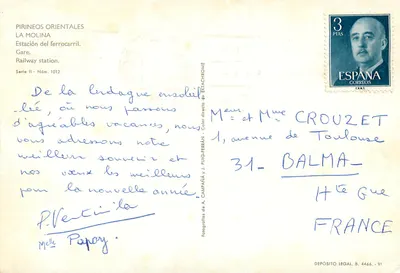 PIRINEOS ORIENTALES
LA MOLINA
Estación del ferrocarril.
Gare.
Railway station.
Serie II - Núm. 1052
3
PTAS
ESPAÑA
CORREOS
De la Cerdagne ensoleil-
lée, où nous passons
d'agréables vacances, nous
vous adressons notre
meilleur souvenir et
nos vœux les meilleurs
pour la nouvelle année.
Mr et Mme CROUZET
1, avenue de Toulouse
31- BALMA
Hte Gne
FRANCE
Papoy.
Fotografías de A. CAMPAÑÁ y J. PUIG-FERRÁN
DEPÓSITO LEGAL B. 4466 -